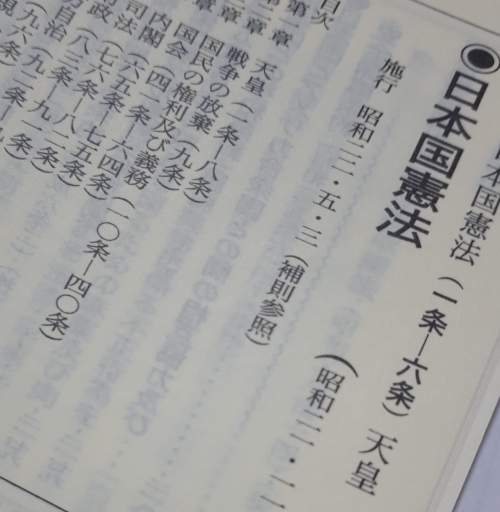 日本国憲法（一条―六条）天皇
◉日本国憲法
（昭和二一・一一
施行 昭和二二・五・三（補則参照）
目次
第一章 天皇（一条―八条）
第二章 戦争の放棄（九条）
章 国民の権利及び義務（一〇条―四〇条）
国会（四一条―六四条）
内閣（六五条―七五条）
司法（七六条―八二条）
財政（八三条―九一条）
方自治（九二条―九五条）
（九六条）